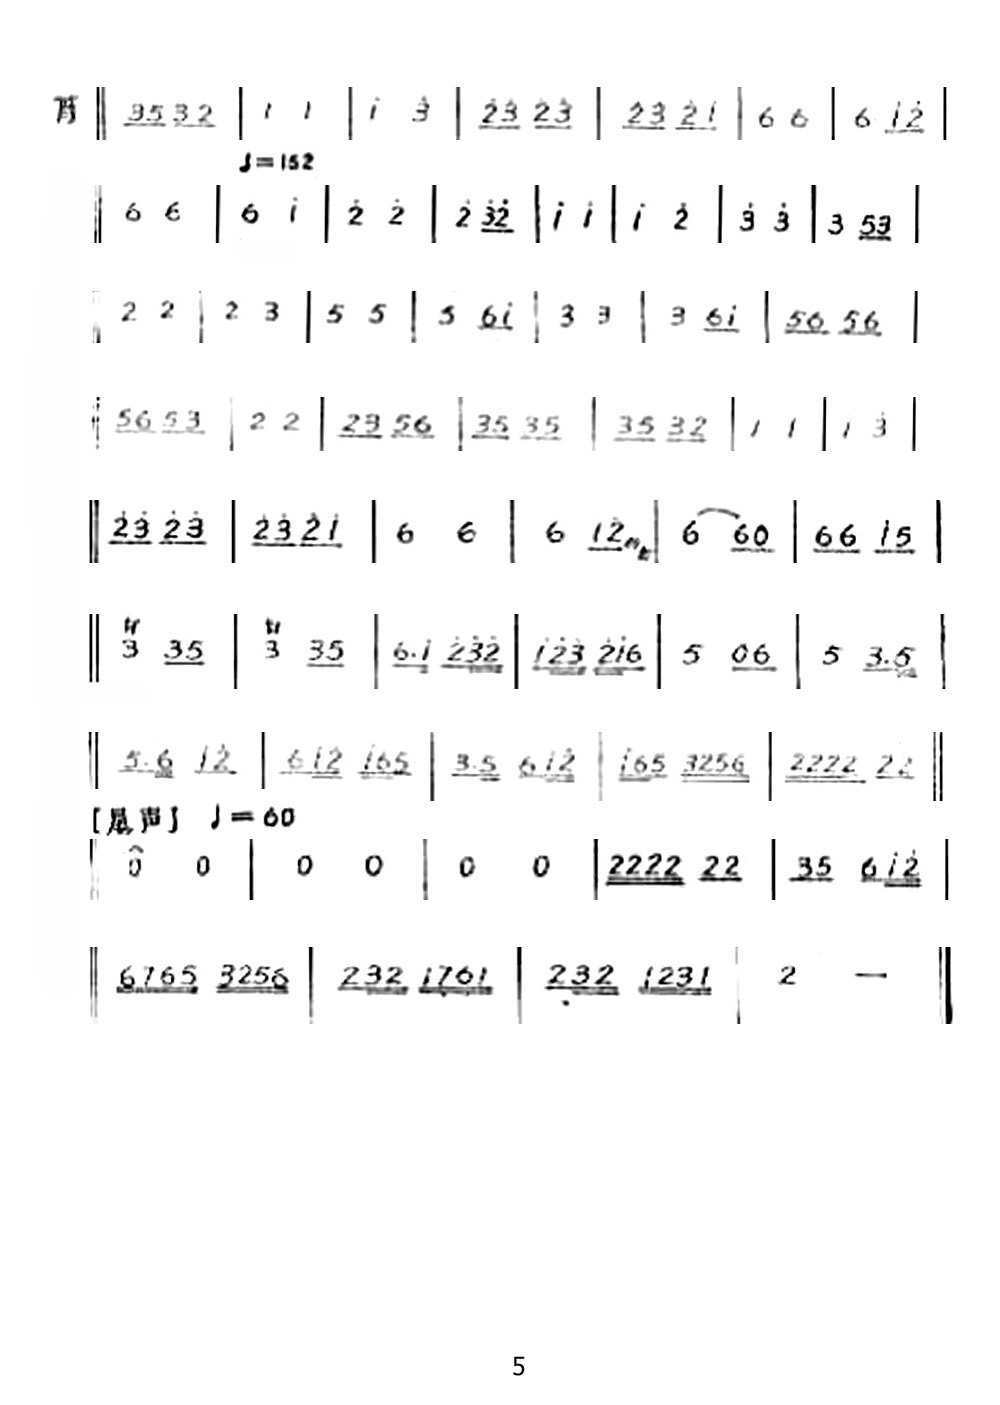 3532 | 1 1 | i 3̇ | 2̇3̇ 2̇3̇ | 2̇3̇ 2̇i | 6 6 | 6 i2̇ |
♩=152
6 6 | 6 i | 2̇ 2̇ | 2̇ 3̇2̇ | i i | i 2̇ | 3̇ 3̇ | 3 53 |
2 2 | 2 3 | 5 5 | 5 6i | 3 3 | 3 6i | 56 56 |
56 53 | 2 2 | 23 56 | 35 35 | 35 32 | 1 1 | 1 3̇ |
2̇3̇ 2̇3̇ | 2̇3̇ 2̇i | 6 6 | 6 i2̇ | 6 60 | 66 i5 |
3 35 | 3 35 | 6·i 2̇3̇2̇ | i2̇3̇ 2̇i6 | 5 06 | 5 3·5 |
5·6 i2̇ | 6i2̇ i65 | 3·5 6i2̇ | i65 3256 | 2222 22 ‖
[尾声] ♩=60
0 0 | 0 0 | 0 0 | 2222 22 | 35 6i2̇ |
6765 3256 | 232 1761 | 232 1231 | 2 — ‖
5